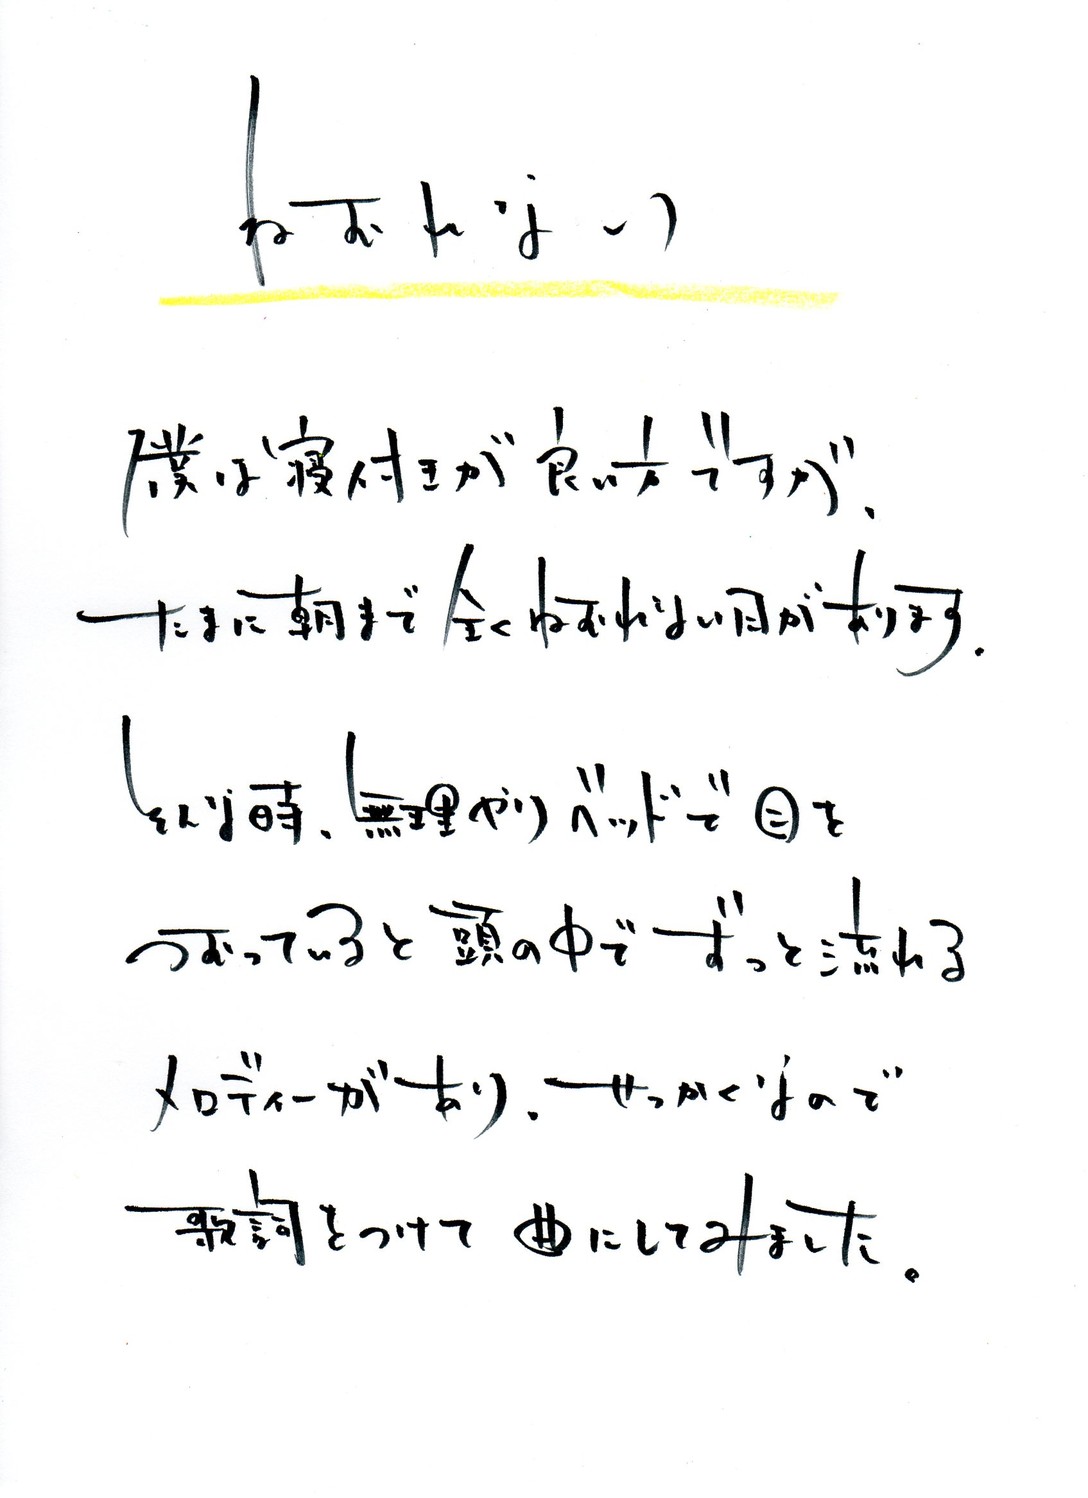 ねむれない
僕は寝付きが良い方ですが、
たまに朝まで全くねむれない日があります.
そんな時、無理やりベッドで目を
つむっていると頭の中でずっと流れる
メロディーがあり、せっかくなので
歌詞をつけて曲にしてみました.